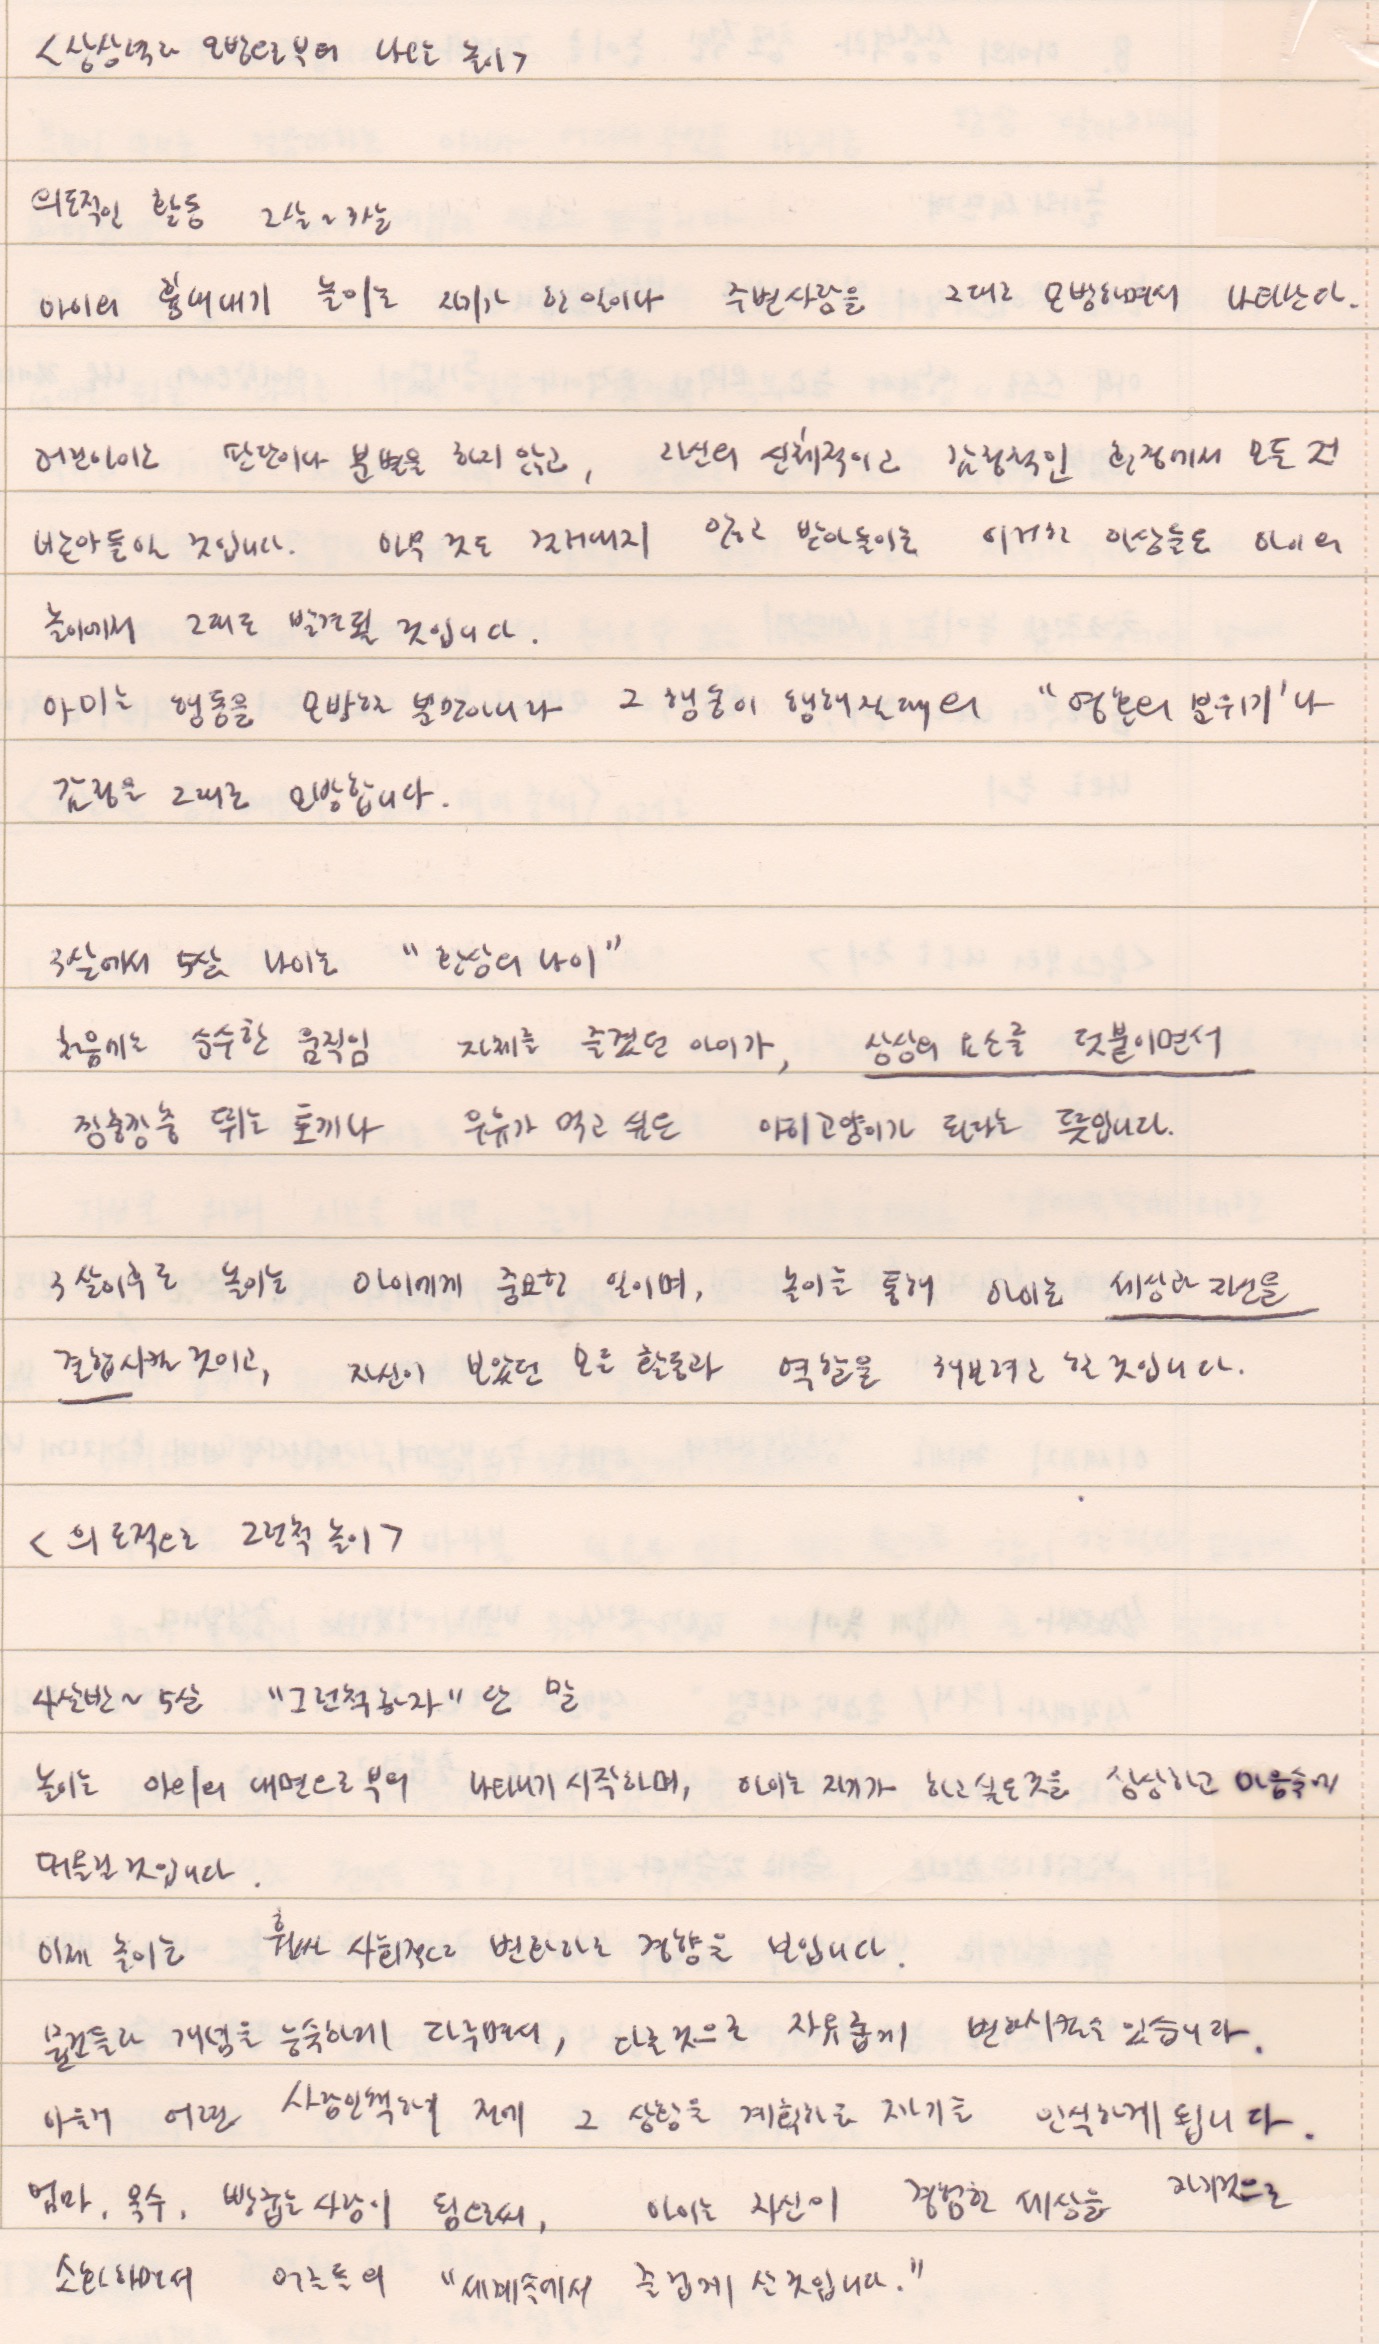 <상상력과 모방으로부터 나오는 놀이>
의도적인 활동 2살~3살
아이의 흉내내기 놀이는 자기가 한 일이나 주변사람을 그대로 모방하면서 나타난다.
어린아이는 판단이나 분별을 하지 않고, 자신의 신체적이고 감정적인 환경에서 모든 것
받아들일 것입니다. 아무 것도 걸러내지 않고 받아들이는 이러한 인상들도 아이의
놀이에서 그대로 발견될 것입니다.
아이는 행동을 모방할 뿐만아니라 그 행동이 행해질때의 "영혼의 분위기'나
감정을 그대로 모방합니다.
3살에서 5살 나이는 "환상의 나이"
처음에는 순수한 움직임 자체를 즐겼던 아이가, 상상의 요소를 덧붙이면서
깡충깡충 뛰는 토끼나 우유가 먹고 싶은 아기고양이가 된다는 뜻입니다.
3살이후로 놀이는 아이에게 중요한 일이며, 놀이를 통해 아이는 세상과 자신을
결합시킬 것이고, 자신이 보았던 모든 활동과 역할을 해보려고 할 것입니다.
<의도적으로 그런척 놀이>
4살반~5살 "그런척하자" 란 말
놀이는 아이의 내면으로부터 나타내기 시작하며, 아이는 자기가 하고싶은것을 상상하고 마음속에
떠올릴 것입니다.
이제 놀이는 훨씬 사회적으로 변화하는 경향을 보입니다.
물건들과 개념을 능숙하게 다루면서, 다른것으로 자유롭게 변화시킬수 있습니다.
아울러 어떤 사람인척하기 전에 그 상황을 계획하는 자기를 인식하게 됩니다.
엄마, 목수, 빵굽는 사람이 됨으로써, 아이는 자신이 경험한 세상을 자기것으로
소화하면서 어른들의 "세계속에서 즐겁게 산 것입니다."